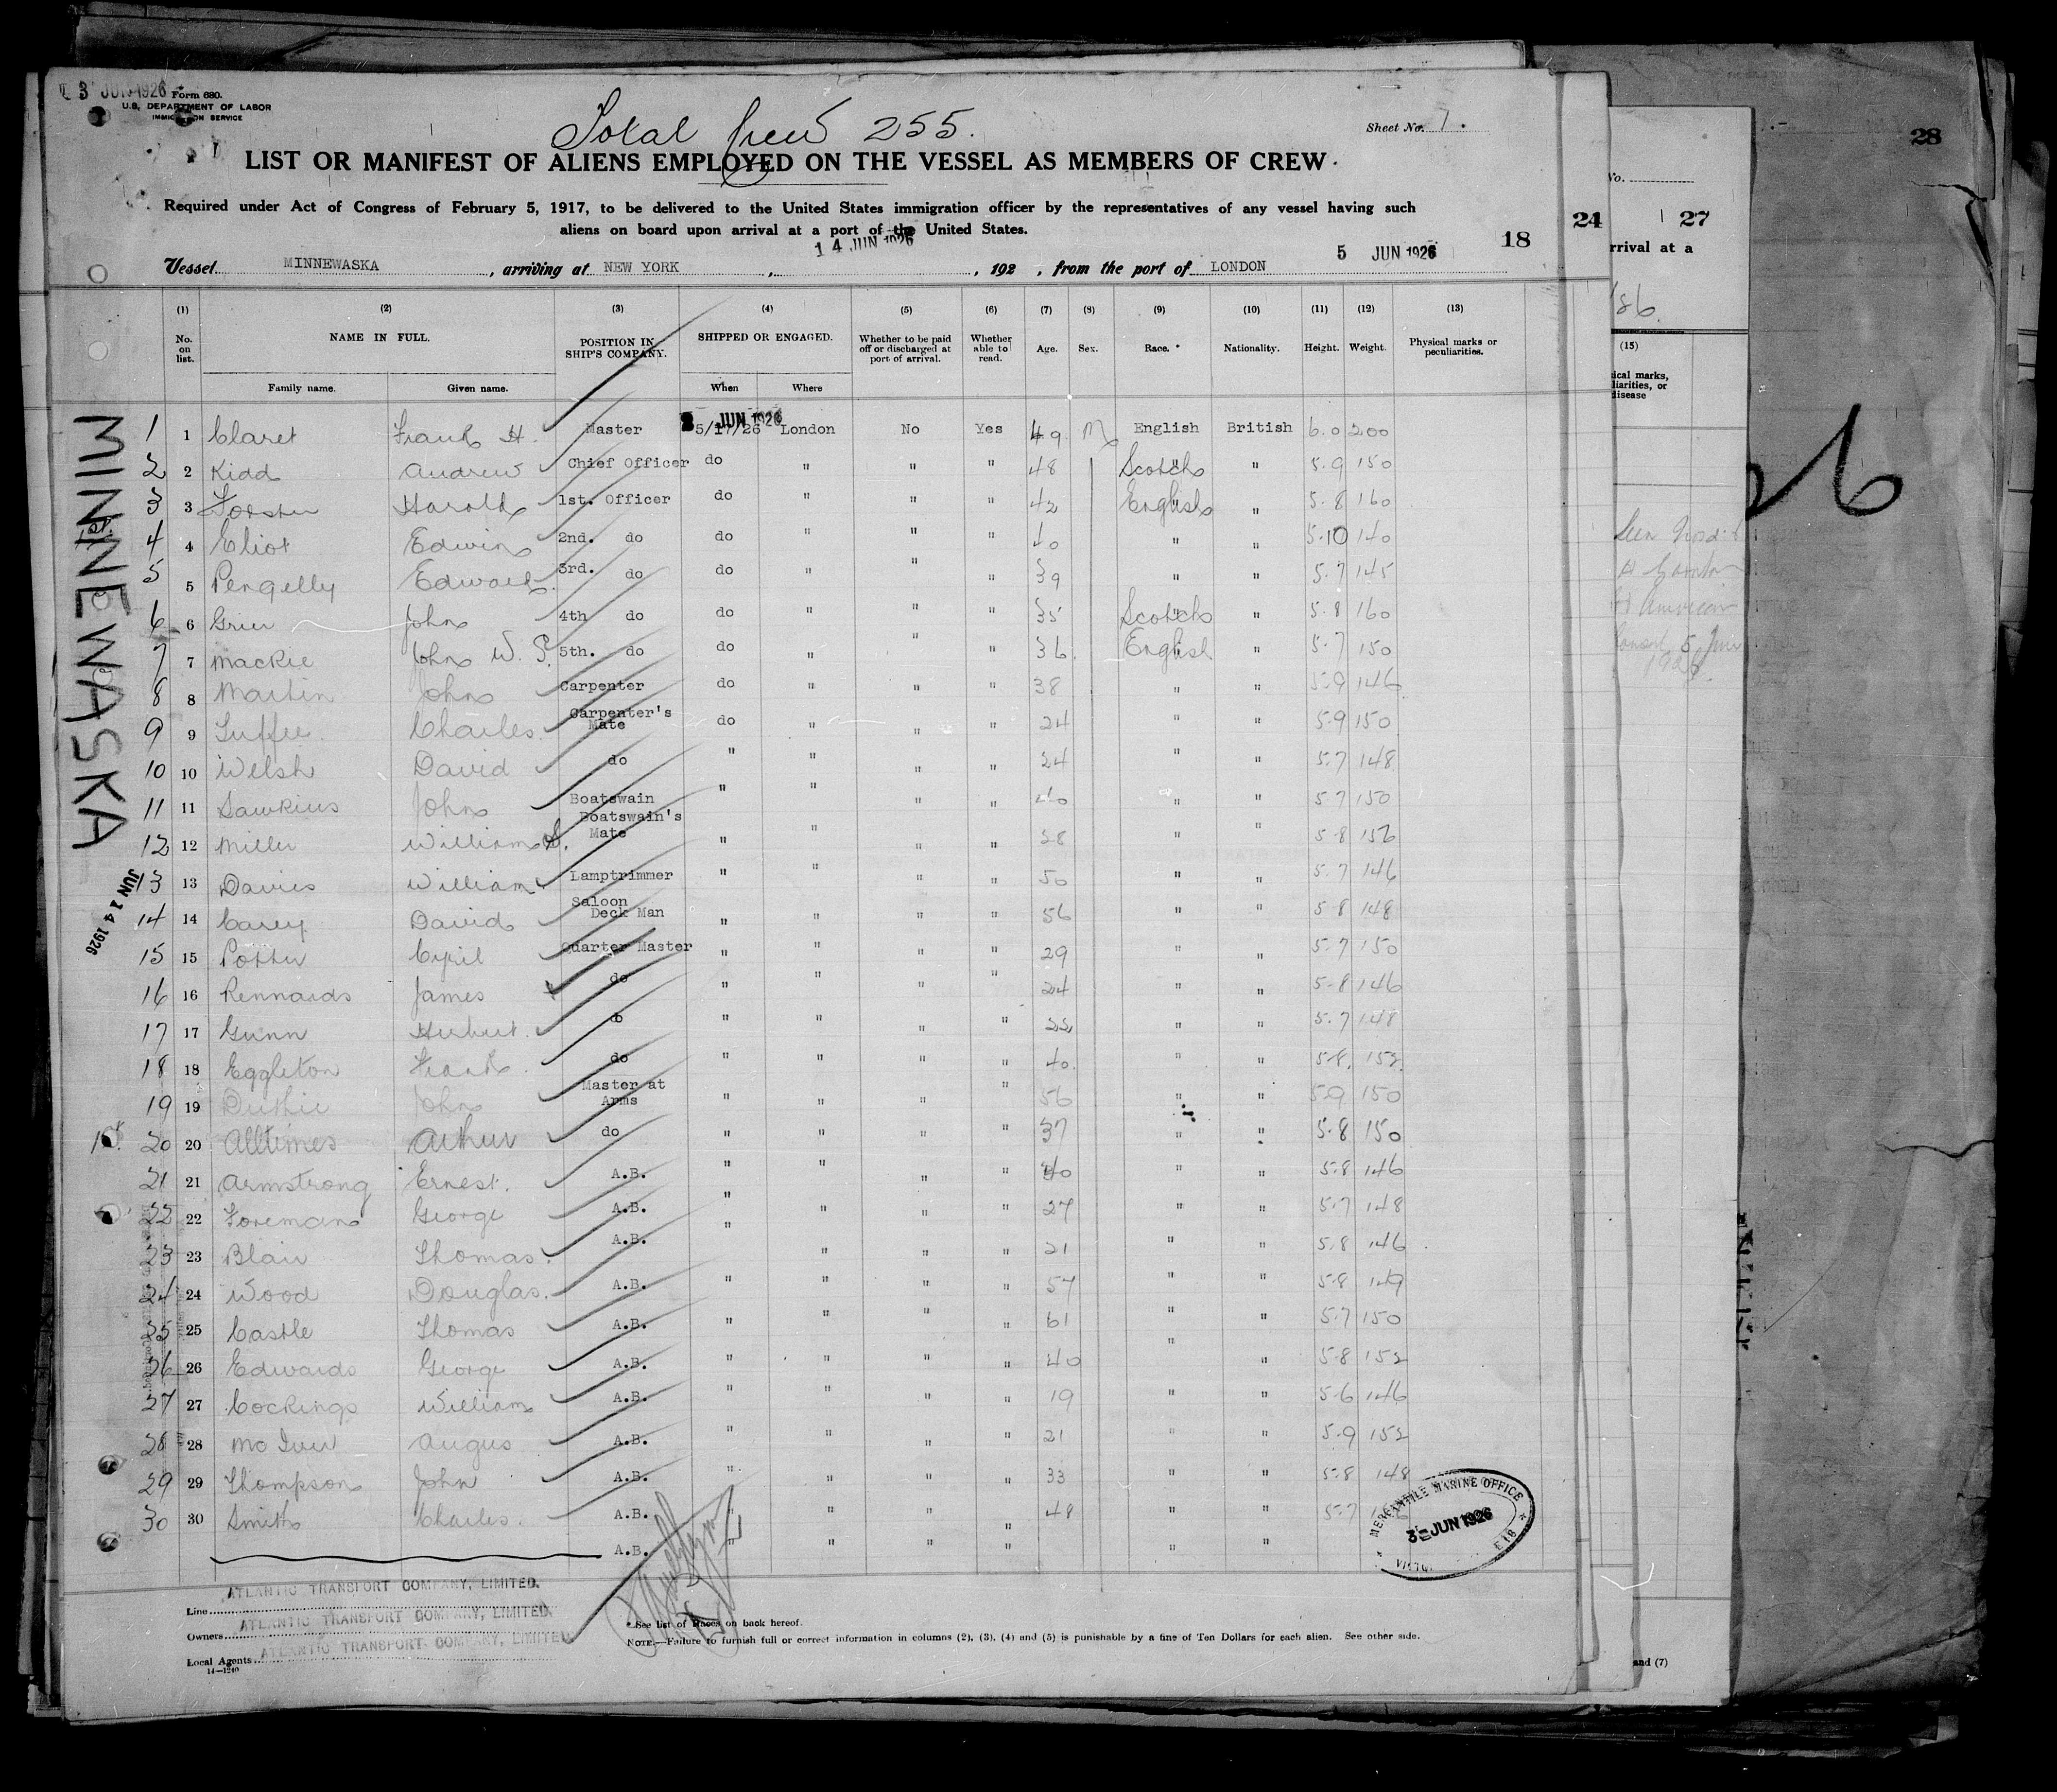 3 JUN 1926 Form 680.
U.S. DEPARTMENT OF LABOR
IMMIGRATION SERVICE
Total Crew 255.
Sheet No. 1.
LIST OR MANIFEST OF ALIENS EMPLOYED ON THE VESSEL AS MEMBERS OF CREW
Required under Act of Congress of February 5, 1917, to be delivered to the United States immigration officer by the representatives of any vessel having such
aliens on board upon arrival at a port of the United States.
14 JUN 1926
18
Vessel MINNEWASKA, arriving at NEW YORK, , 192 , from the port of LONDON 5 JUN 1926
(1) (2) (3) (4) (5) (6) (7) (8) (9) (10) (11) (12) (13)
No. on list. NAME IN FULL. POSITION IN SHIP'S COMPANY. SHIPPED OR ENGAGED. Whether to be paid off or discharged at port of arrival. Whether able to read. Age. Sex. Race. * Nationality. Height. Weight. Physical marks or peculiarities.
Family name. Given name. When Where
JUN 1926
1 1 Claret Frank H. Master 5/17/26 London No Yes 49 M English British 6.0 200
2 2 Kidd Andrew Chief Officer do " " " 48 Scotch " 5.9 150
3 3 Forster Harold 1st. Officer do " " " 42 English " 5.8 160
4 4 Eliot Edwin 2nd. do do " " " 40 " " 5.10 140
5 5 Pengelly Edward 3rd. do do " " " 39 " " 5.7 145
6 6 Grier John 4th do do " " " 35 Scotch " 5.8 160
7 7 Mackie John W. 5th. do do " " " 36. English " 5.7 150
8 8 Martin John Carpenter do " " " 38 " " 5.9 146
9 9 Charles Carpenter's Mate do " " " 24 " " 5.9 150
10 10 Welsh David do " " " " 24 " " 5.7 148
11 11 Dawkins John Boatswain " " " " 40 " " 5.7 150
12 12 Miller William Boatswain's Mate " " " " 28 " " 5.8 156
13 13 Davies William Lamptrimmer " " " " 50 " " 5.7 146
14 14 Carey David Saloon Deck Man " " " " 56 " " 5.8 148
15 15 Potter Cyril Quarter Master " " " " 29 " " 5.7 150
16 16 Rennards James do " " " " 24 " " 5.8 146
17 17 Gunn Herbert. do " " " " " " 5.7 148
18 18 Eggleton Frank do " " " " 40. " " 5.8. 152.
19 19 Duthie John Master at Arms " " " " 56 " " 5.9 150
20 20 Alltimes Arthur do " " " " 37 " " 5.8 150
21 21 Armstrong Ernest. A.B. " " " " 40 " " 5.8 146
22 22 Foreman George A.B. " " " " 27 " " 5.7 148
23 23 Blair Thomas. A.B. " " " " 21 " " 5.8 146
24 24 Wood Douglas. A.B. " " " " 57 " " 5.8 149
25 25 Castle Thomas A.B. " " " " 61 " " 5.7 150
26 26 Edwards George A.B. " " " " 40 " " 5.8 152
27 27 Cockings William A.B. " " " " 19 " " 5.6 146
28 28 Mc Iver Angus A.B. " " " " 21 " " 5.9 152
29 29 Thompson John A.B. " " " " 33 " " 5.8 148
30 30 Smith Charles. A.B. " " " " 48 " " 5.7
A.B. " " " " " "
MINNEWASKA
JUN 14 1926
MERCANTILE MARINE OFFICE
3 JUN 1926
E18
Line ATLANTIC TRANSPORT COMPANY, LIMITED.
Owners ATLANTIC TRANSPORT COMPANY, LIMITED.
Local Agents ATLANTIC TRANSPORT COMPANY, LIMITED
14—1240
* See list of Races on back hereof.
NOTE.—Failure to furnish full or correct information in columns (2), (3), (4) and (5) is punishable by a fine of Ten Dollars for each alien. See other side.
24
No.
27
rrival at a
(15)
ical marks,
liarities, or
disease
5 June
and (7)
28